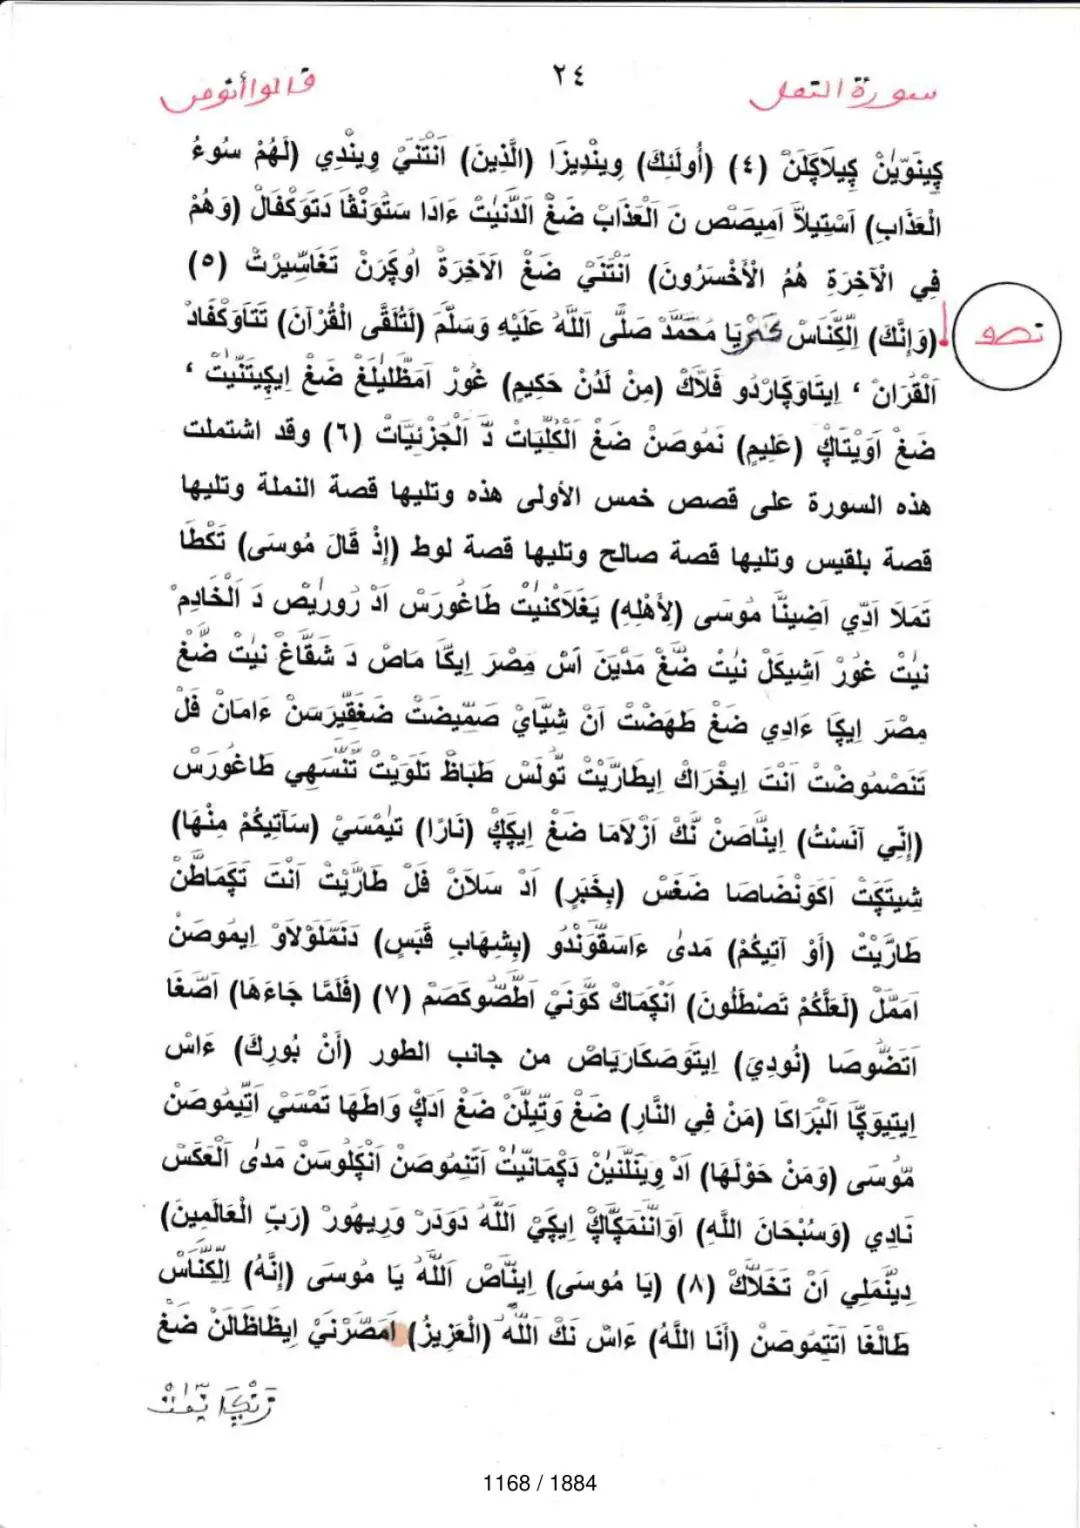 سورة النمل ٢٤ قالوا أنومن
كِينَوّينْ كِيلَاكِلَنْ (٤) (أُولَئِكَ) وِينْدِيزَا (الَّذِينَ) اَنْتَنَيْ وِينْدِي (لَهُمْ سُوءُ
الْعَذَابِ) اَسْتِيلاَّ اَمِيصَصْ نَ اَلْعَذَابْ ضَغْ اَلدُّنْيَتْ ءَادَا سَتُونْفَا دَتَوَكْفَالْ (وَهُمْ
فِي الْآخِرَةِ هُمُ الْأَخْسَرُونَ) اَنْتَنَيْ ضَغْ اَلْآخِرَةْ اُوكَرَنْ تَغَاسِّيرْتْ (٥)
تصو
(وَإِنَّكَ) اِلْكَنَاسْ يَا مُحَمَّدْ صَلَّى اللَّهُ عَلَيْهِ وَسَلَّمَ (لَتُلَقَّى الْقُرْآنَ) تَتَاوَكْفَادْ
اَلْقُرَانْ ، اِيتَاوَكَارْدُو فَلاَّكْ (مِنْ لَدُنْ حَكِيمٍ) غُورْ اَمَظْلِيلَغْ ضَغْ اِيكِيتَنِّيتْ ،
ضَغْ اَوِيتَاكِ (عَلِيمٍ) نَمُوصَنْ ضَغْ اَلْكُلِّيَاتْ دَّ اَلْجُزْئِيَّاتْ (٦) وقد اشتملت
هذه السورة على قصص خمس الأولى هذه وتليها قصة النملة وتليها
قصة بلقيس وتليها قصة صالح وتليها قصة لوط (إِذْ قَالَ مُوسَى) تَكْطَا
تَمَلَا اَدِّي اَضِينَّا مُوسَى (لِأَهْلِهِ) يَغْلَاكْنِيتْ طَاغُورَسْ اَدْ رُورِيصْ دَ اَلْخَادِمْ
نيتْ غُورْ اَشِيكَلْ نيتْ ضَغْ مَدْيَنَ اَسْ مِصْرَ اِيكَا مَاصْ دَ شَقَّاغْ نيتْ ضَغْ
مِصْرَ اِيكَا ءَادِي ضَغْ طَهَضْتْ اَنْ شِيَّايْ صَمِّيضَتْ ضَغَقِّيرَسَنْ ءَامَانْ فَلْ
تَنَصْمُوضْتْ اَنْتَ اِيخْرَاكْ اِيطَارِيتْ تُولَسْ طَبَاظْ تَلَوِيتْ تَّنْسَهِي طَاغُورَسْ
(إِنِّي آنَسْتُ) اِينَّاصَنْ نَّكْ اَزْلَامَا ضَغْ اِيكِكْ (نَارًا) تِيمْسَيْ (سَآتِيكُمْ مِنْهَا)
شِيتَكِتْ اَكَوَنْضَاصَا ضَغَسْ (بِخَبَرٍ) اَدْ سَلَانْ فَلْ طَارِّيْتْ اَنْتَ تَكِمَاطَنْ
طَارِّيْتْ (أَوْ آتِيكُمْ) مَدىٰ ءَاسَقَّوَنْدُو (بِشِهَابٍ قَبَسٍ) دَنَمَّلَوْلَاوْ اِيمُوصَنْ
اَمَمَّلْ (لَعَلَّكُمْ تَصْطَلُونَ) اَنْكِمَاكْ كَوَنَيْ اَطَصُّوكَصَمْ (٧) (فَلَمَّا جَاءَهَا) اَصَّغَا
اَتَضُّوصَا (نُودِيَ) اِيتَوَصَكَارَيَاصْ من جانب الطور (أَنْ بُورِكَ) ءَاسْ
اِيتِيوَكَّا اَلْبَرَاكَا (مَنْ فِي النَّارِ) ضَغْ وَتِيلَّنْ ضَغْ اَدَكِ وَاطَهَا تَمْسَيْ اَتِّيمُوصَنْ
مُّوسَى (وَمَنْ حَوْلَهَا) اَدْ وِينَلَّنِينْ دَكِمَانِّيتْ اَتَنِمُوصَنْ اَنْكِلُوسَنْ مَدىٰ اَلْعَكَسْ
نَادِي (وَسُبْحَانَ اللَّهِ) اَوَانَّنَمَكَّاكِ اِيكِيْ اَللَّهُ دَوَدَرْ وَرِيهُورْ (رَبِّ الْعَالَمِينَ)
دِينَّمَلِي اَنْ تَخَلاَّكْ (٨) (يَا مُوسَى) اِينَّاصْ اَللَّهُ يَا مُوسَى (إِنَّهُ) اِلْكَنَّاسْ
طَالْغَا اَتَتِمُوصَنْ (أَنَا اللَّهُ) ءَاسْ نَكْ اَللَّهْ (الْعَزِيزُ) اَمَصَّرْنَيْ اِيظَاظَالَنْ ضَغْ
1168 / 1884